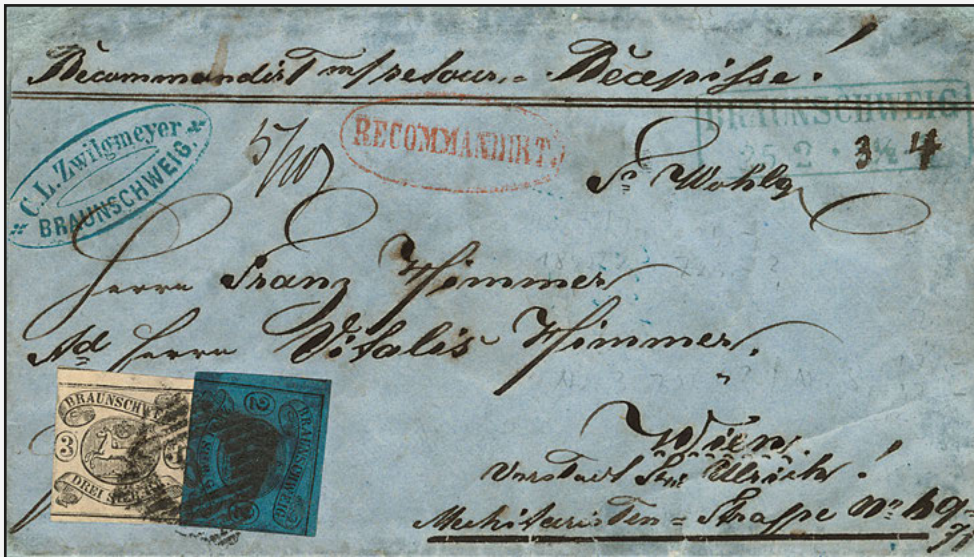 Recommandirt m/retour = Recepisse!
C. L. Zwilgmeyer
BRAUNSCHWEIG.
5/10
RECOMMANDIRT.
BRAUNSCHWEIG
25 2 · 3 4
Sr Wohlg
Herrn Franz Himmer
Ad Herrn Vitalis Himmer.
Wien.
Vorstadt St. Ulrich!
Mechitaristen = Strasse No
BRAUNSCHW
3
DREI
2
BRAUNSCHWEIG